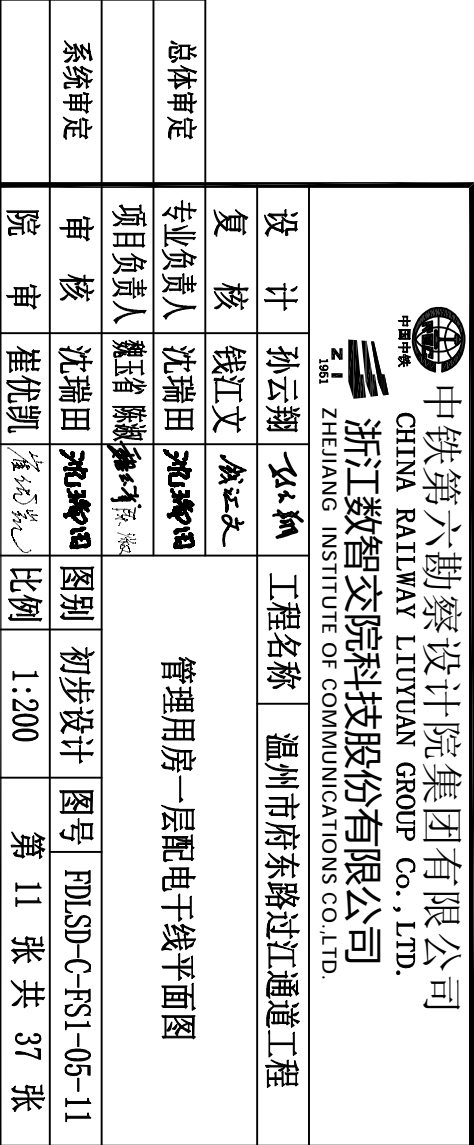 中国中铁
中铁第六勘察设计院集团有限公司
CHINA RAILWAY LIUYUAN GROUP Co.,LTD.
ZI
1951
浙江数智交院科技股份有限公司
ZHEJIANG INSTITUTE OF COMMUNICATIONS CO.,LTD.
设 计 孙云翔 工程名称 温州市府东路过江通道工程
复 核 钱江文 钱江文
总体审定 专业负责人 沈瑞田 沈瑞田 管理用房一层配电干线平面图
项目负责人 魏玉省 陈淑 魏玉省 陈淑
系统审定 审 核 沈瑞田 沈瑞田 图别 初步设计 图号 FDLSD-C-FS1-05-11
院 审 崔优凯 崔优凯 比例 1:200 第 11 张 共 37 张